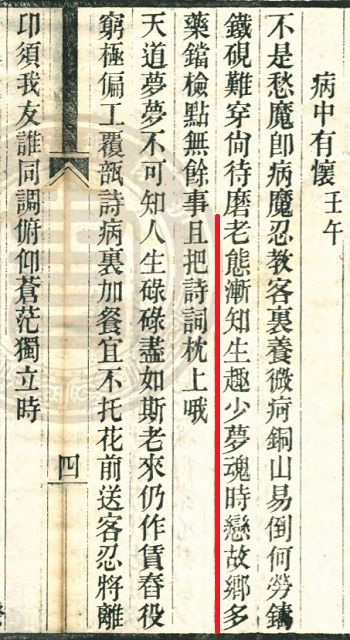 病中有懷 壬午
不是愁魔卽病魔忍教客裏養微疴銅山易倒何勞鑄
鐵硯難穿尙待磨老態漸知生趣少夢魂時戀故鄉多
藥鐺檢點無餘事且把詩詞枕上哦
天道夢夢不可知人生碌碌盡如斯老來仍作賃舂役
窮極偏工覆瓿詩病裏加餐宜不托花前送客忍將離
四
卬須我友誰同調俯仰蒼茫獨立時